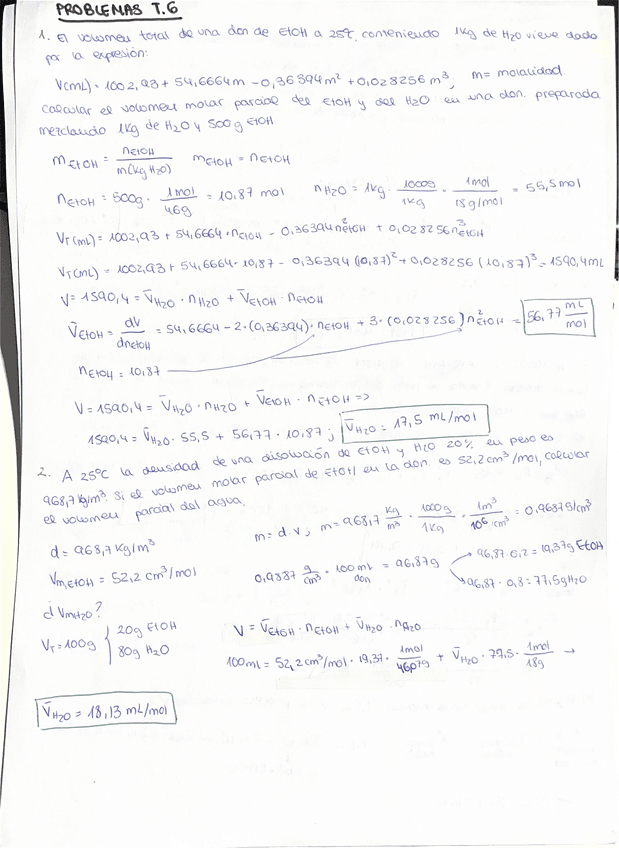 PROBLEMAS T.6
1. El volumen total de una don de EtOH a 25ºC, conteniendo 1kg de H2O viene dado
por la expresión:
V(mL) = 1002,93 + 54,6664m − 0,36394m² + 0,028256 m³, m= molalidad.
Calcular el volumen molar parcial del EtOH y del H2O en una don. preparada
mezclando 1Kg de H2O y 500g EtOH
m EtOH = nEtOH / m(kg H2O) mEtOH = nEtOH
nEtOH = 500g · 1mol / 46g = 10,87 mol nH2O = 1kg · 1000g / 1kg · 1mol / 18g/mol = 55,5mol
VT(mL) = 1002,93 + 54,6664 · nEtOH − 0,36394n²EtOH + 0,028256n³EtOH
VT(mL) = 1002,93 + 54,6664 · 10,87 − 0,36394 (10,87)² + 0,028256 (10,87)³ = 1590,4mL
V = 1590,4 = V̄H2O · nH2O + V̄EtOH · nEtOH
V̄EtOH = dV / dnEtOH = 54,6664 − 2·(0,36394)·nEtOH + 3·(0,028256)n²EtOH = 56,77 mL / mol
nEtOH = 10,87
V = 1590,4 = V̄H2O · nH2O + V̄EtOH · nEtOH =>
1590,4 = V̄H2O · 55,5 + 56,77 · 10,87 ; V̄H2O = 17,5 mL/mol
2. A 25ºC la densidad de una disolución de EtOH y H2O 20% en peso es
968,7 Kg/m³. Si el volumen molar parcial de EtOH en la don. es 52,2 cm³/mol, calcular
el volumen parcial del agua.
d = 968,7 Kg/m³ m = d·v ; m = 968,7 Kg / m³ · 1000g / 1Kg · 1m³ / 10⁶ cm³ = 0,9687g/cm³
Vm,EtOH = 52,2 cm³/mol 0,9887 g / cm³ · 100 ml don = 96,87g 96,87·0,2 = 19,37g EtOH
96,87 · 0,8 = 77,5g H2O
¿VmH2O?
VT = 100g { 20g EtOH
80g H2O
V = V̄EtOH · nEtOH + V̄H2O · nH2O
100ml = 52,2 cm³/mol · 19,37 · 1mol / 46,07g + V̄H2O · 77,5 · 1mol / 18g →
V̄H2O = 18,13 mL/mol